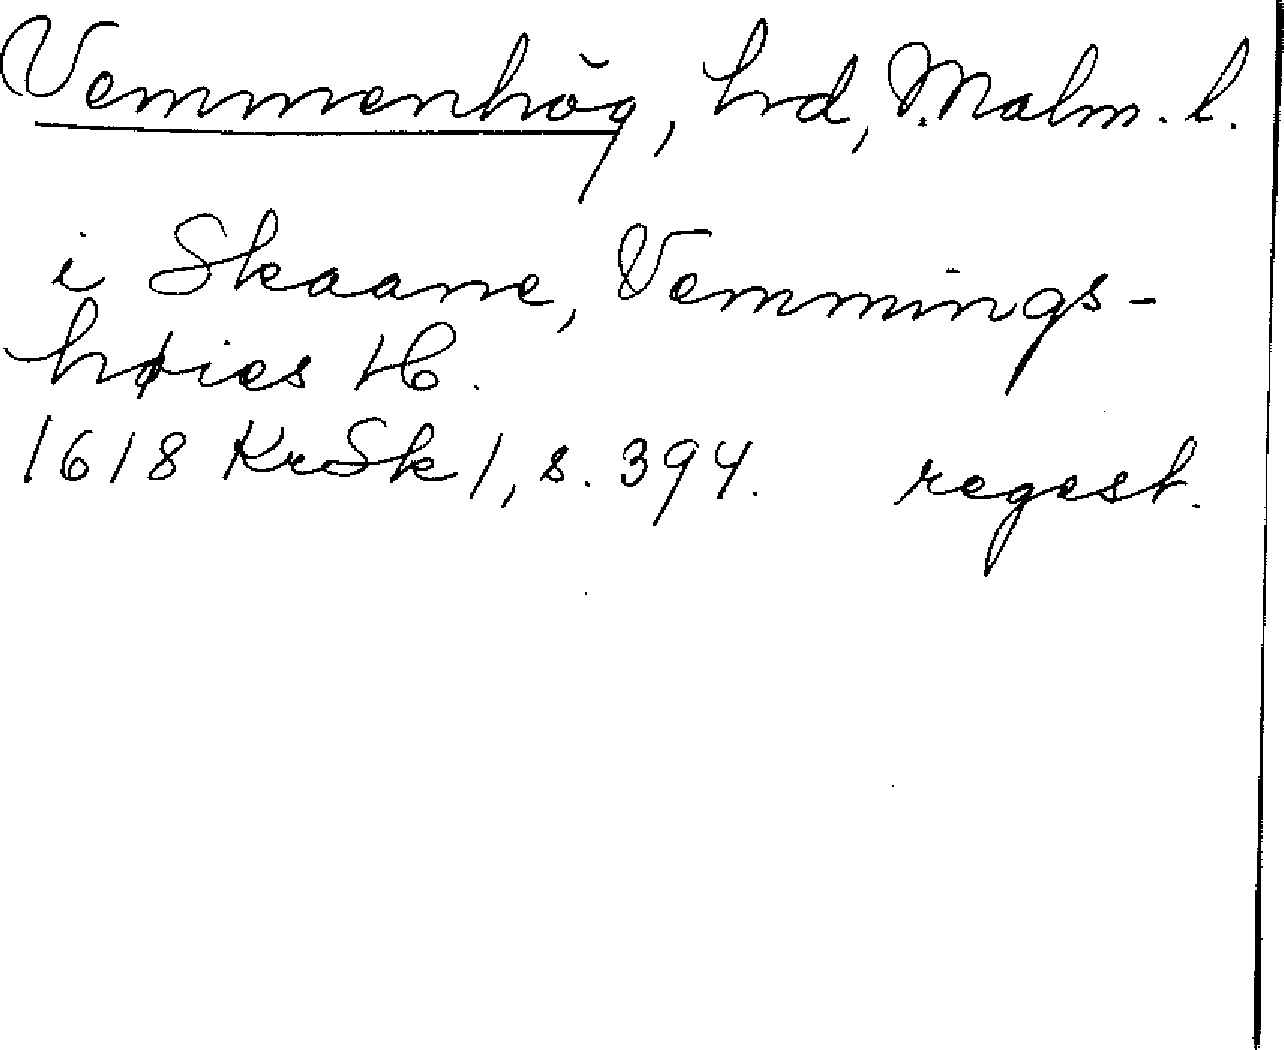 Vemmenhög, hrd, Malm. l.
i Skaane, Vemmings-
høies H.
1618 KrSk 1, s. 394. regest.